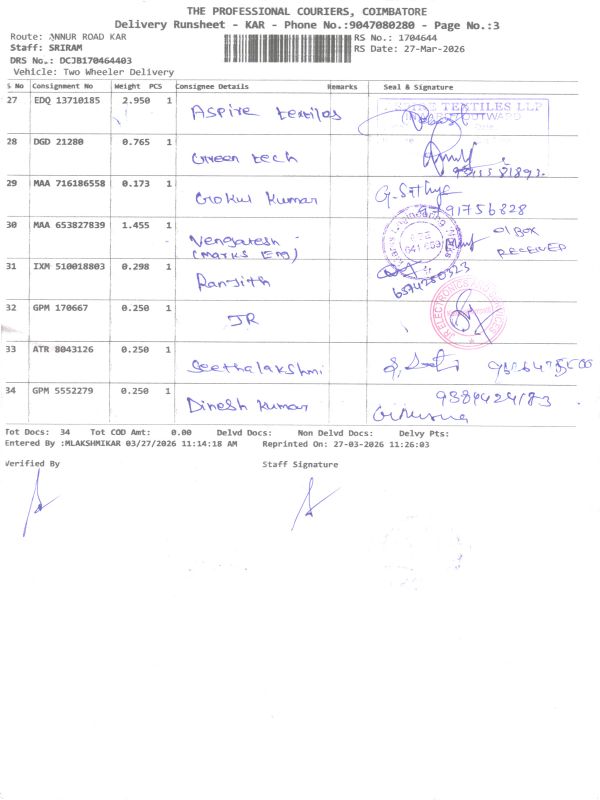 THE PROFESSIONAL COURIERS, COIMBATORE
Delivery Runsheet - KAR - Phone No.:9047080280 - Page No.:3
Route: ANNUR ROAD KAR
RS No.: 1704644
Staff: SRIRAM
RS Date: 27-Mar-2026
DRS No.: DCJB170464403
Vehicle: Two Wheeler Delivery
S No Consignment No Weight PCS Consignee Details Remarks Seal & Signature
27 EDQ 13710185 2.950 1 Aspire textiles
TEXTILES LLP
28 DGD 21280 0.765 1 Green tech
29 MAA 716186558 0.173 1 Gokul kumar G. Sithya
30 MAA 653827839 1.455 1 Vengatesh -
(MARKS ENG)
01 BOX
RECEIVED
31 IXM 510018803 0.298 1 Ranjith
6374280323
32 GPM 170667 0.250 1 JR
JR ELECTRONICS
33 ATR 8043126 0.250 1 Seethalakshmi
34 GPM 5552279 0.250 1 Dinesh kumar
Tot Docs: 34 Tot COD Amt: 0.00 Delvd Docs: Non Delvd Docs: Delvy Pts:
Entered By :MLAKSHMIKAR 03/27/2026 11:14:18 AM Reprinted On: 27-03-2026 11:26:03
Verified By Staff Signature